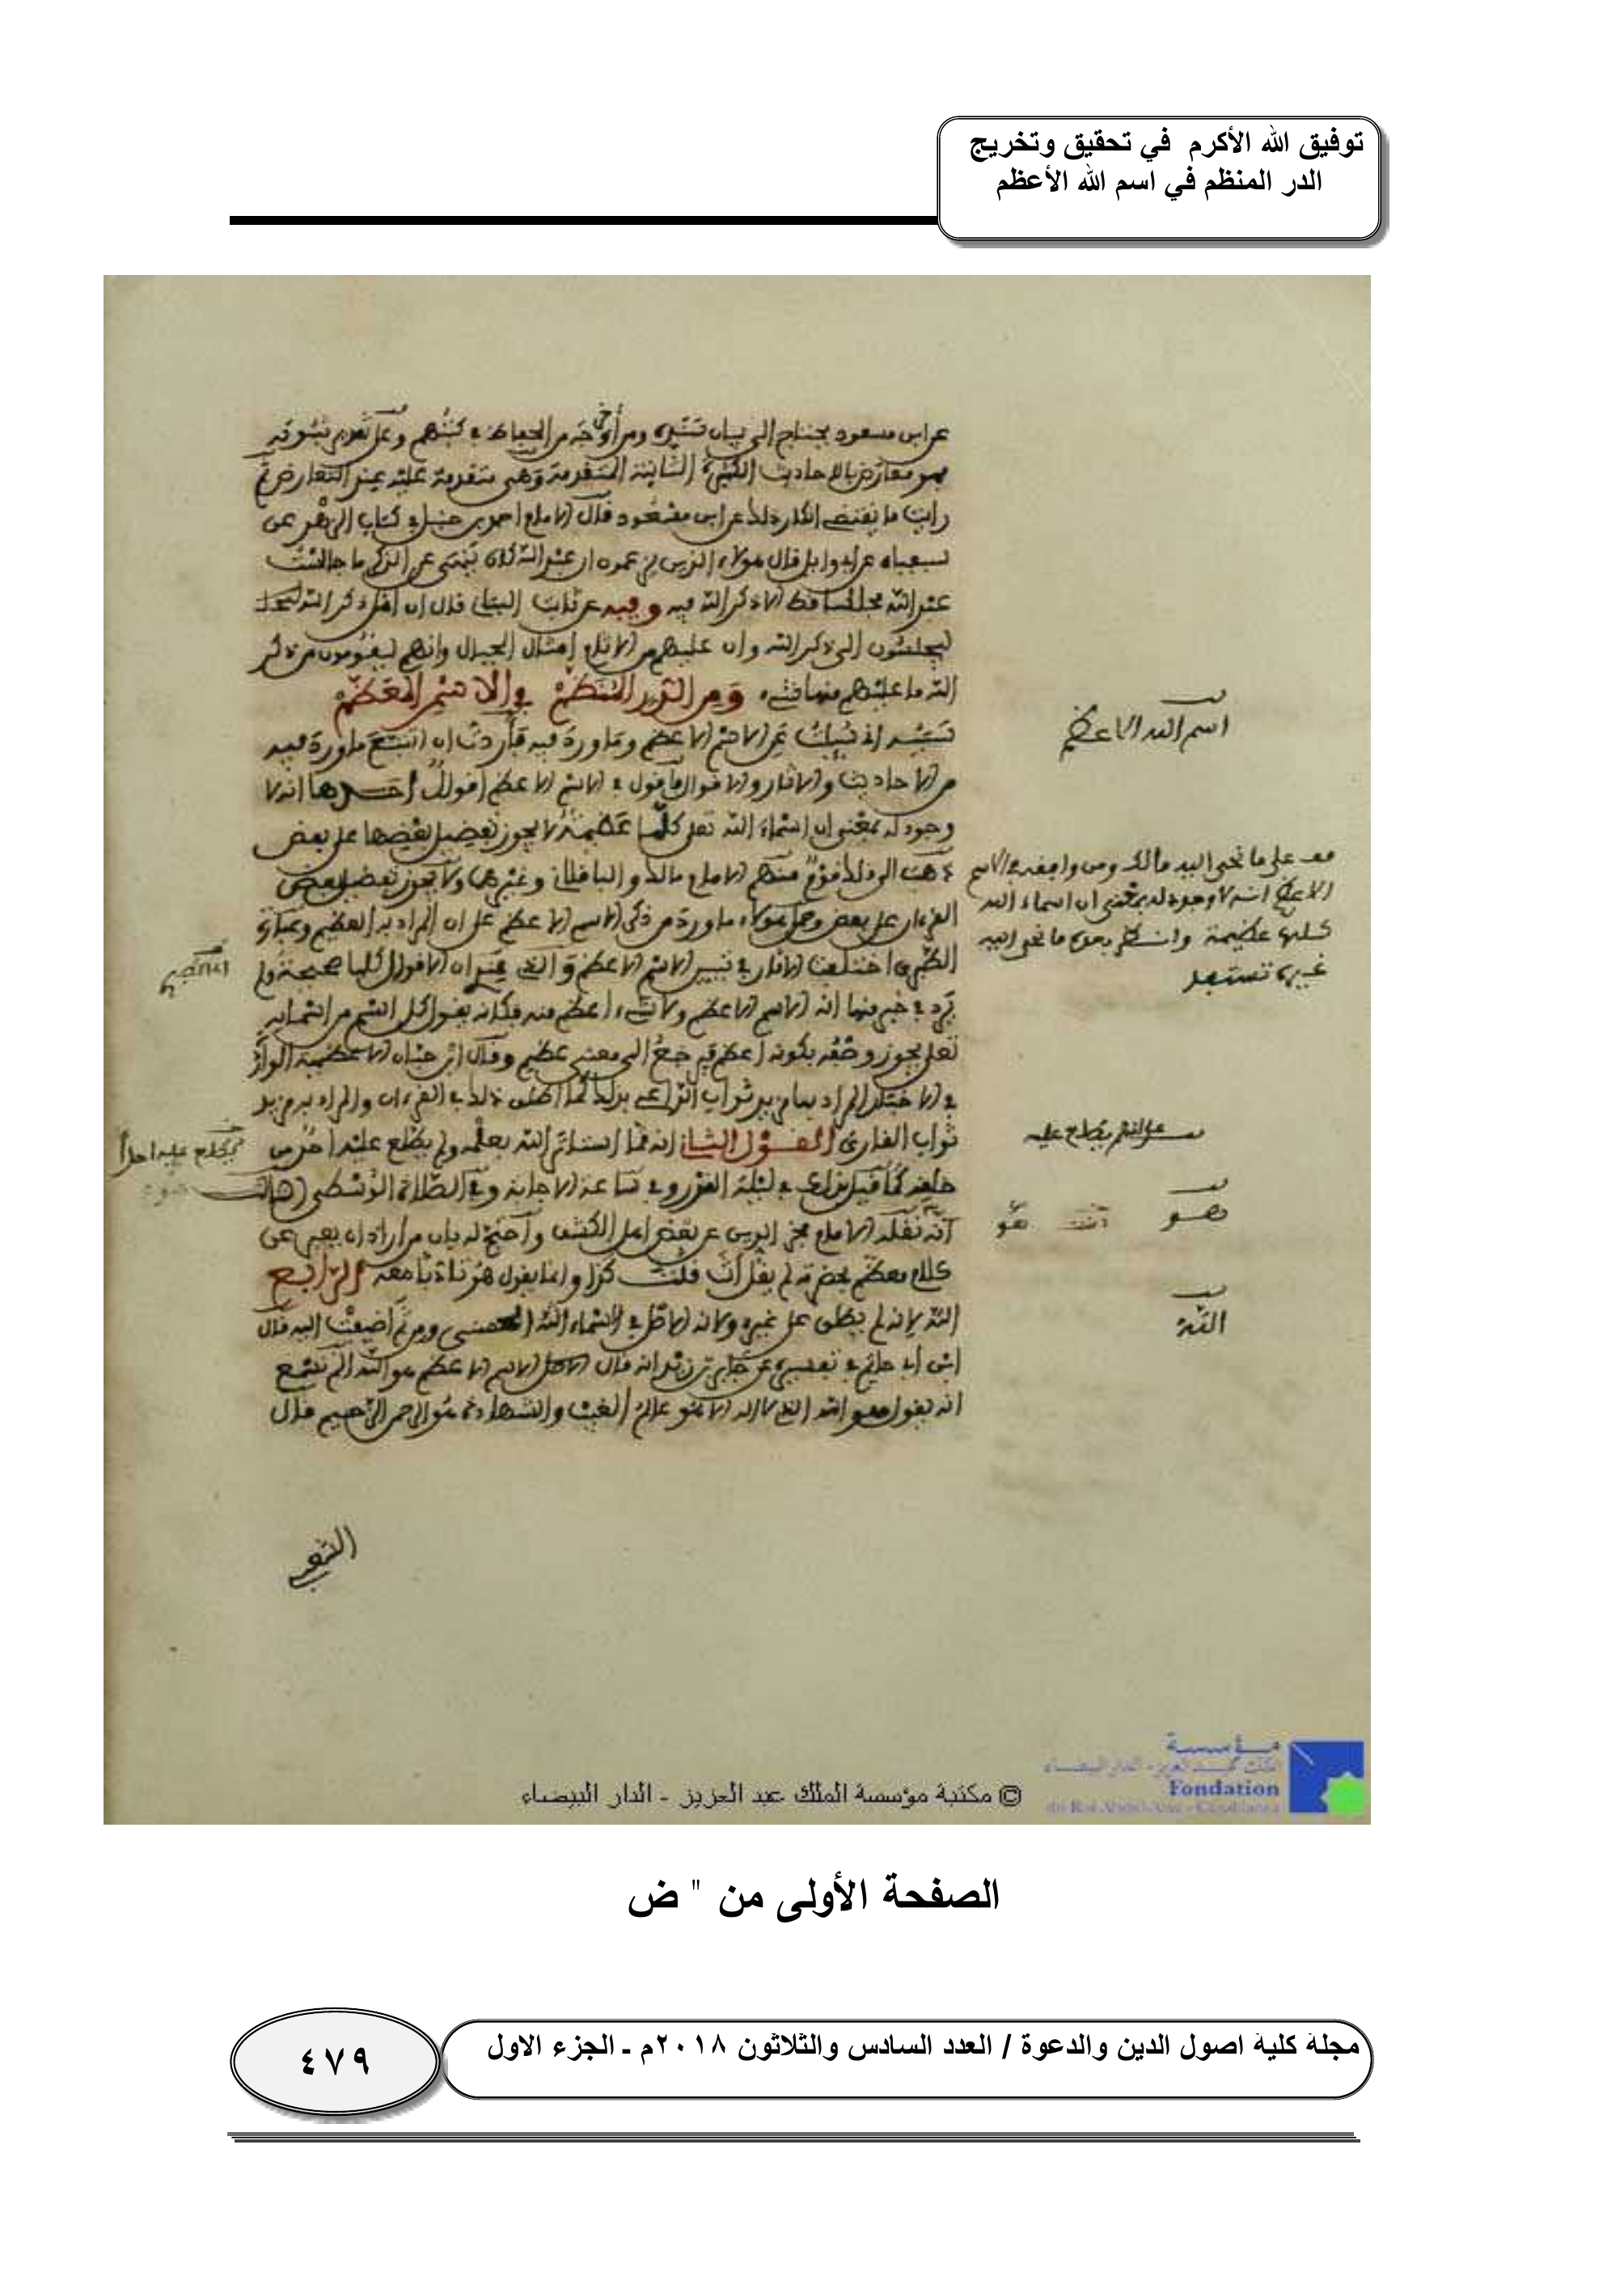 توفيق الله الأكرم في تحقيق وتخريج
الدر المنظم في اسم الله الأعظم
عن ابن مسعود يحتاج الى بيان سنده ومن أخرجه من الحفاظ في كتبهم وعلى تقدير ثبوته
فهو معارض بالاحاديث الكثيرة الثابتة المتقدمة وهى متقدمة عليه عند التعارض ثم
رايت ما يقتضى انكار ذلك عن ابن مسعود قال الامام احمد بن حنبل في كتاب الزهد
عن ابى وايل قال هولاء الذين يزعمون ان عبد الله كان ينهى عن الذكر ما جالست
عبد الله مجلسا قط الا ذكر الله فيه وفيه عن ثابت البناني قال ان اهل ذكر الله
ليجلسون الى ذكر الله وان عليهم من الاثام امثال الجبال وانهم ليقومون من ذكر
الله ما عليهم منها شىء ومن الدرر المنظم في الاسم المعظم
سيلت عن الاسم الاعظم وما ورد فيه فأردت ان اتتبع ما ورد فيه
من الاحاديث والاثار والاقوال فأقول في الاسم الاعظم اقوال احدها انه لا
وجود له بمعنى ان اسماء الله تعلى كلها عظيمة لا يجوز تفضيل بعضها على بعض
ذهب الى ذلك قوم منهم الامام مالك والباقلانى وغيرهما ولا يجوز تفضيل بعض
القرءان على بعض وحمل هولاء ما ورد من ذكر الاسم الاعظم على ان المراد به العظيم وعبارة
الطبري اختلفت الاثار في تعيين الاسم الاعظم والذي عندي ان الاقوال كلها صحيحة ولم
يرد في خبر منها انه الاسم الاعظم ولا شىء اعظم منه فكانه يقول كل اسم من اسمائه
تعلى يجوز وصفه بكونه اعظم فيرجع الى معنى عظيم وقال ابن حبان الاعظمية الواردة
في الاخبار المراد بها مزيد ثواب الداعي بذلك كما اطلق ذلك في القرءان والمراد به مزيد
ثواب القارئ القول الثاني انه مما استاثر الله بعلمه ولم يطلع عليه احد من
خلقه كما قيل بذلك في ليلة القدر وفي ساعة الاجابة وفي الصلاة الوسطى الثالث
انه نقله الامام فخر الدين عن بعض اهل الكشف واحتج له بان من اراد ان يعبر عن
كلام معظم بحضرته لم يقل أنت قلت كذا وانما يقول هو تادبا معه الرابع
الله لانه لم يطلق على غيره ولانه الاصل في الاسماء الحسنى ومن ثم أضيفت اليه قال
ابن أبى حاتم في تفسيره عن جابر بن زيد انه قال الاسم الاعظم هو الله الم تسمع
انه يقول هو الله الذي لا اله الا هو عالم الغيب والشهادة هو الرحمن الرحيم قال
اسم الله الاعظم
قف على ما نحى اليه مالك ومن وافقه في الاسم
الاعظم انه لا وجود له بمعنى ان اسماء الله
كلها عظيمة وانظر بعده ما نحى اليه
غيره تستفد
يطلع عليه
هو
هو
الله
يطلع عليه احدا
© مكتبة مؤسسة الملك عبد العزيز - الدار البيضاء
مؤسسة
Fondation
du Roi Abdul-Aziz - Casablanca
الصفحة الأولى من " ض
مجلة كلية اصول الدين والدعوة / العدد السادس والثلاثون ٢٠١٨م ـ الجزء الاول
٤٧٩